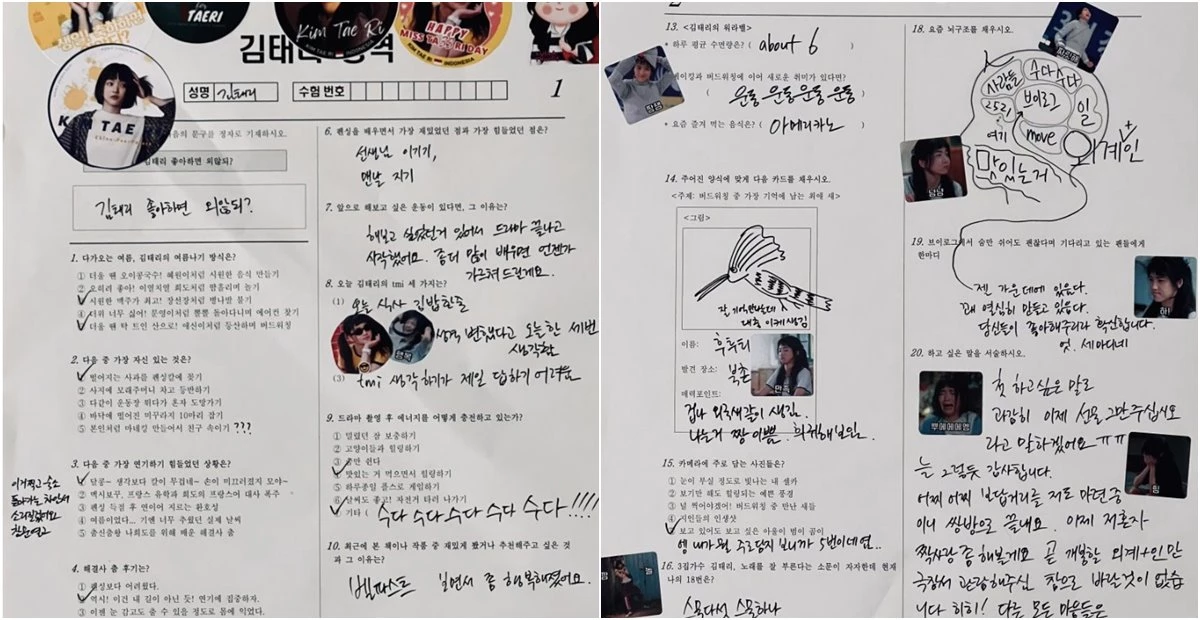 TAERI
Kim Tae Ri
HAPPY
MISS TAE RI DAY
KIM TAE RI INDONESIA
김태리
성명 김태리
수험 번호
1
TAE
문구를 정자로 기재하시오.
김태리 좋아하면 외않되?
김태리 좋아하면 외않되?
1. 다가오는 여름, 김태리의 여름나기 방식은?
① 더울 땐 오이콩국수! 혜원이처럼 시원한 음식 만들기
② 오히려 좋아! 이열치열 희도처럼 땀흘리며 놀기
③ 시원한 맥주가 최고! 장선장처럼 병나발 불기
④ 더워 너무 싫어! 문영이처럼 뽈뽈 돌아다니며 에어컨 찾기
⑤ 더울 땐 탁 트인 산으로! 애신이처럼 등산하며 버드워칭
2. 다음 중 가장 자신 있는 것은?
① 떨어지는 사과를 펜싱칼에 꽂기
② 사지에 모래주머니 차고 등반하기
③ 다같이 운동장 뛰다가 혼자 도망가기
④ 바닥에 떨어진 미꾸라지 10마리 잡기
⑤ 본인처럼 마네킹 만들어서 친구 속이기 ???
3. 다음 중 가장 연기하기 힘들었던 상황은?
① 달콩~ 생각보다 칼이 무겁네~ 손이 미끄러졌지 모야~
② 멕시보구, 프랑스 유학과 희도의 프랑스어 대사 폭주
③ 펜싱 득점 후 연이어 지르는 환호성
④ 여름이었다... 기엔 너무 추웠던 실제 날씨
⑤ 출신출왕 나희도를 위해 배운 해결사 춤
4. 해결사 춤 후기는?
① 펜싱보다 어려웠다.
② 역시! 이건 내 길이 아닌 듯! 연기에 집중하자.
③ 이젠 눈 감고도 출 수 있을 정도로 몸에 익었다.
6. 펜싱을 배우면서 가장 재밌었던 점과 가장 힘들었던 점은?
선생님 이기기,
맨날 지기
7. 앞으로 해보고 싶은 운동이 있다면, 그 이유는?
해보고 싶었던거 있어서 드라마 끝나고
시작했어요. 좀더 많이 배우면 언젠가
가르쳐 드릴게요.
8. 오늘 김태리의 tmi 세 가지는?
(1) 오늘 식사 김밥한줄
성격 변했다고 오늘 한 세번
생각함
행복
(3) tmi 생각하기가 제일 답하기 어려움
9. 드라마 촬영 후 에너지를 어떻게 충전하고 있는가?
① 밀렸던 잠 보충하기
② 고양이들과 힐링하기
③ 숨만 쉰다
④ 맛있는 거 먹으면서 힐링하기
⑤ 하루종일 플스로 게임하기
⑥ 날씨도 좋고! 자전거 타러 나가기
⑦ 기타 ( 수다 수다 수다 수다 수다!!!!
10. 최근에 본 책이나 작품 중 재밌게 봤거나 추천해주고 싶은 것
과 그 이유는?
벨파스트 보면서 좀 행복해졌어요.
13. <김태리의 워라밸>
* 하루 평균 수면량은? ( about 6 )
베이킹과 버드워칭에 이어 새로운 취미가 있다면?
( 운동 운동운동 운동 )
* 요즘 즐겨 먹는 음식은? ( 아메리카노 )
14. 주어진 양식에 맞게 다음 카드를 채우시오.
<주제: 버드워칭 중 가장 기억에 남는 최애 새>
<그림>
잘 기억안나는데
대충 이케생김
이름: 후투티
발견 장소: 북촌
매력포인트:
만족
겁나 외국새같이 생김.
나는거 짱 이쁨. 희귀해보임.
15. 카메라에 주로 담는 사진들은?
① 눈이 부실 정도로 빛나는 내 셀카
② 보기만 해도 힐링되는 예쁜 풍경
③ 널 찍어야겠어! 버드워칭 중 만난 새들
④ 지인들의 인생샷
⑤ 보고 있어도 보고 싶은 아움이 범이 곰이
16. 3집가수 김태리, 노래를 잘 부른다는 소문이 자자한데 현재
나의 18번은?
스물다섯 스물하나
18. 요즘 뇌구조를 채우시오.
사람들
수다수다
2521
브이로그
일
연기
move
외계+인
맛있는거
당당
19. 브이로그에서 숨만 쉬어도 괜찮다며 기다리고 있는 팬들에게
한마디
젤 가운데에 있음다.
꽤 열심히 만들고 있읍다.
당신들이 좋아해주리라 확신합니다.
엇. 세마디네
하!
20. 하고 싶은 말을 서술하시오.
첫 하고싶은 말로
과감히 이제 선물 그만 주십시오
라고 말하겠어요 ㅠㅠ
뿌에에에엥
늘 그럴듯 감사합니다.
힝
어찌 어찌 보답거리를 저도 마련중
이니 쌍방으로 끝내요. 이제 저혼자
짝사랑 좀 해볼게요 곧 개봉할 외계+인 만
극장서 관람해주신 참으로 바랄것이 없습
니다 히히! 다른 모든 마음들은